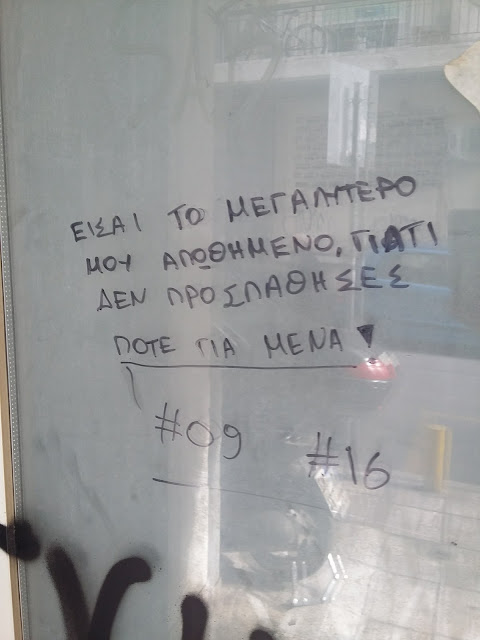 ΕΙΣΑΙ ΤΟ ΜΕΓΑΛΥΤΕΡΟ
ΜΟΥ ΑΠΩΘΗΜΕΝΟ, ΓΙΑΤΙ
ΔΕΝ ΠΡΟΣΠΑΘΗΣΕΣ
ΠΟΤΕ ΓΙΑ ΜΕΝΑ!
#09
#16